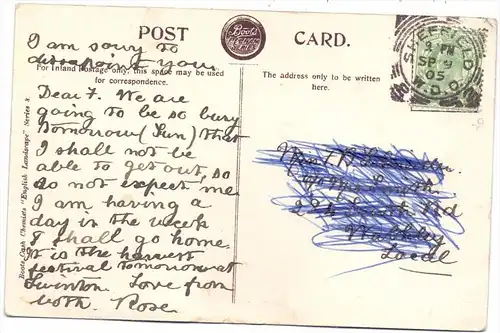 I am sorry to
disappoint you
POST CARD.
Boots
For Inland Postage only, this space may be used
for correspondence.
The address only to be written
here.
SHEFFIELD
3 PM
SP 9
05
Dear F. We are
going to be so busy
tomorrow (Sun) that
I shall not be
able to get out, so
do not expect me
I am having a
day in the week
I shall go home.
It is the harvest
festival tomorrow at
Swinton. Love from
both. Rose
Boots Cash Chemists "English Landscape" Series
South Rd
Walkley
Local